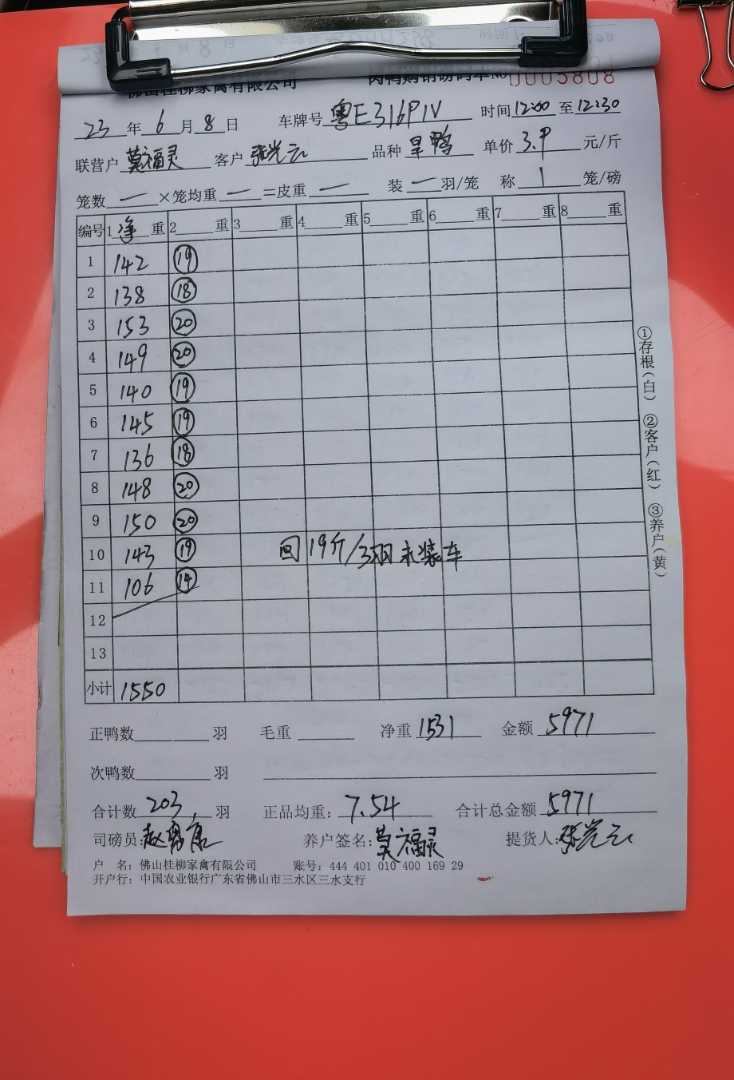 佛山桂柳家禽有限公司 肉鸭购销磅码单№0005808
23年6月8日 车牌号 粤E316P1V 时间12:00至12:30
联营户 莫福灵 客户 张光云 品种 旱鸭 单价 3.9 元/斤
笼数 一 ×笼均重 一 =皮重 一 装 一 羽/笼 称 1 笼/磅
编号 1 净 重 2 重 3 重 4 重 5 重 6 重 7 重 8 重
1 142 ⑲
2 138 ⑱
3 153 ⑳
4 149 ⑳
5 140 ⑲
6 145 ⑲
7 136 ⑱
8 148 ⑳
9 150 ⑳
10 143 ⑲ 回19斤/3羽未装车
11 106 ⑭
12
13
小计 1550
正鸭数 羽 毛重 净重 1531 金额 5971
次鸭数 羽
合计数 203 羽 正品均重: 7.54 合计总金额 5971
司磅员: 养户签名: 莫福灵 提货人: 张光云
户 名: 佛山桂柳家禽有限公司 账号: 444 401 010 400 169 29
开户行: 中国农业银行广东省佛山市三水区三水支行
①存根(白) ②客户(红) ③养户(黄)